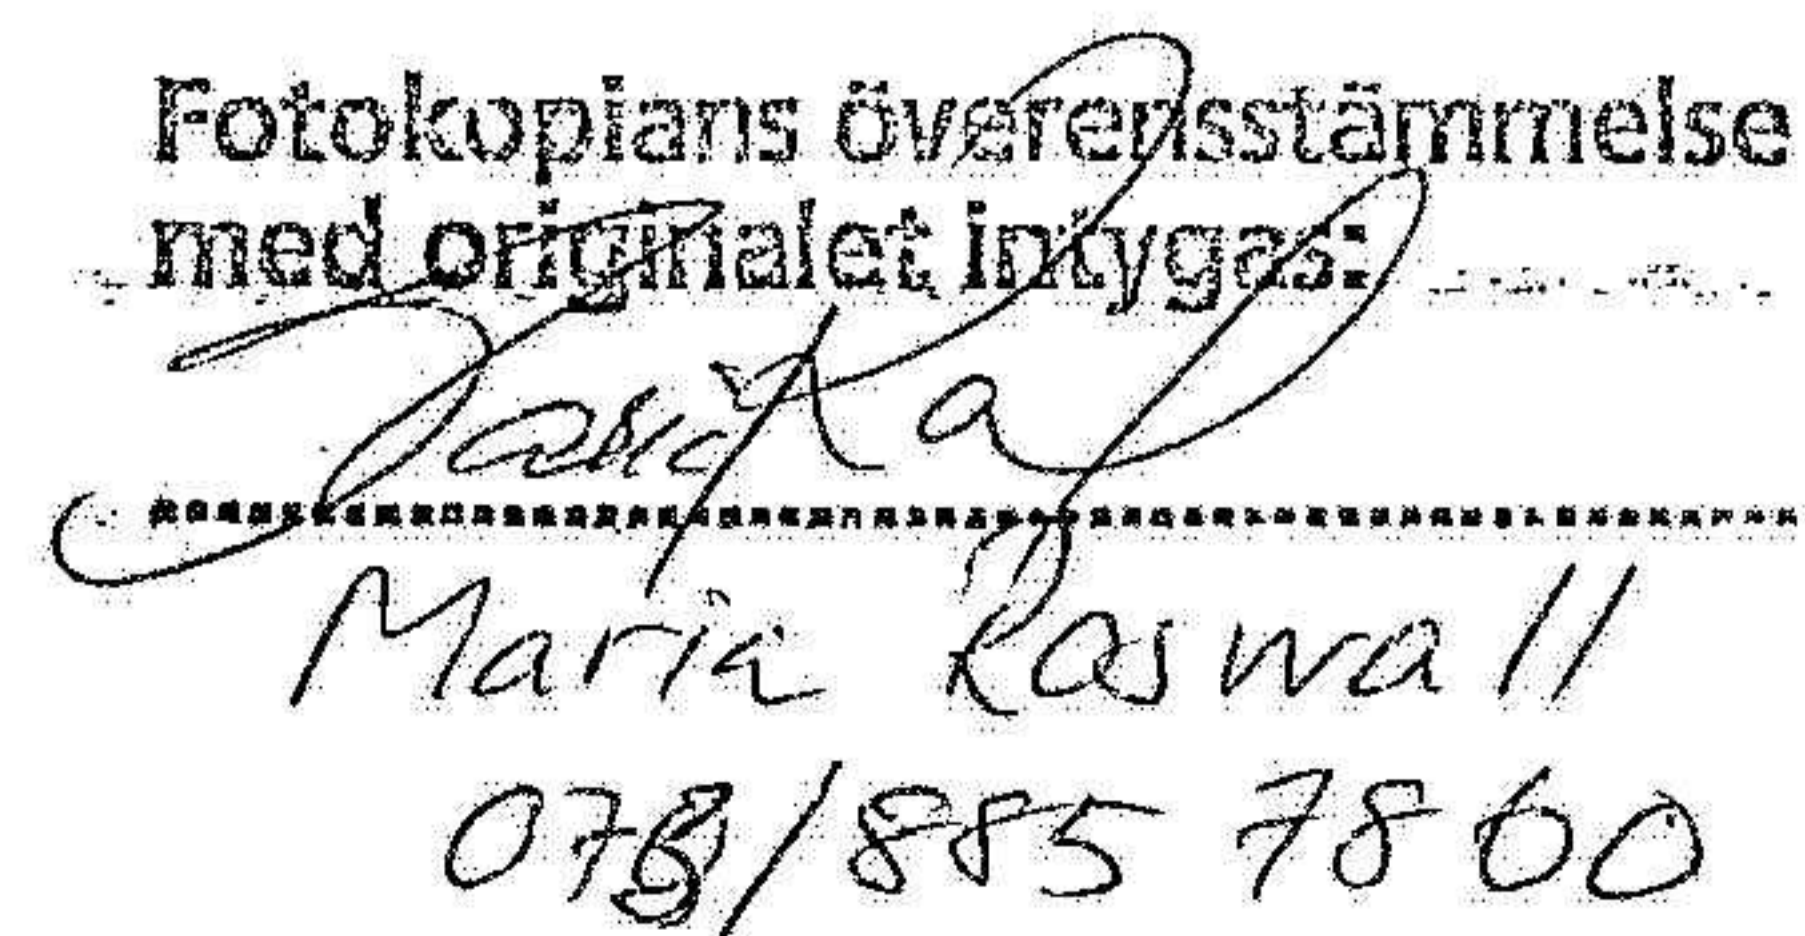 Fotokopians överensstämmelse
med originalet intygas:
Maria Roswall
073/885 7860